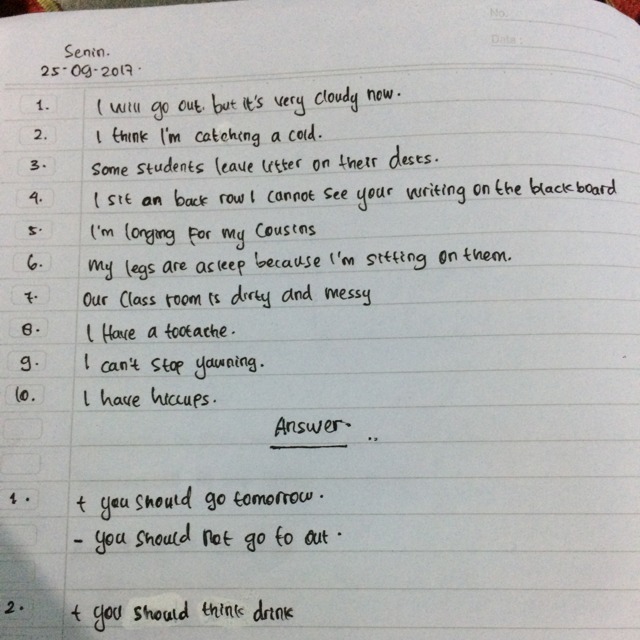 No.
Date:
Senin.
25-09-2017.
1. I will go out. but it's very cloudy now.
2. I think I'm catching a cold.
3. Some students leave litter on their desks.
4. I sit an back row I cannot see your writing on the blackboard
5. I'm longing for my Cousins
6. My legs are asleep because I'm sitting on them.
7. Our Class room is dirty and messy
8. I Have a tootache.
9. I can't stop yawning.
10. I have hiccups.
Answer. ..
1. + you should go tomorrow.
- you should not go to out.
2. + you should think drink